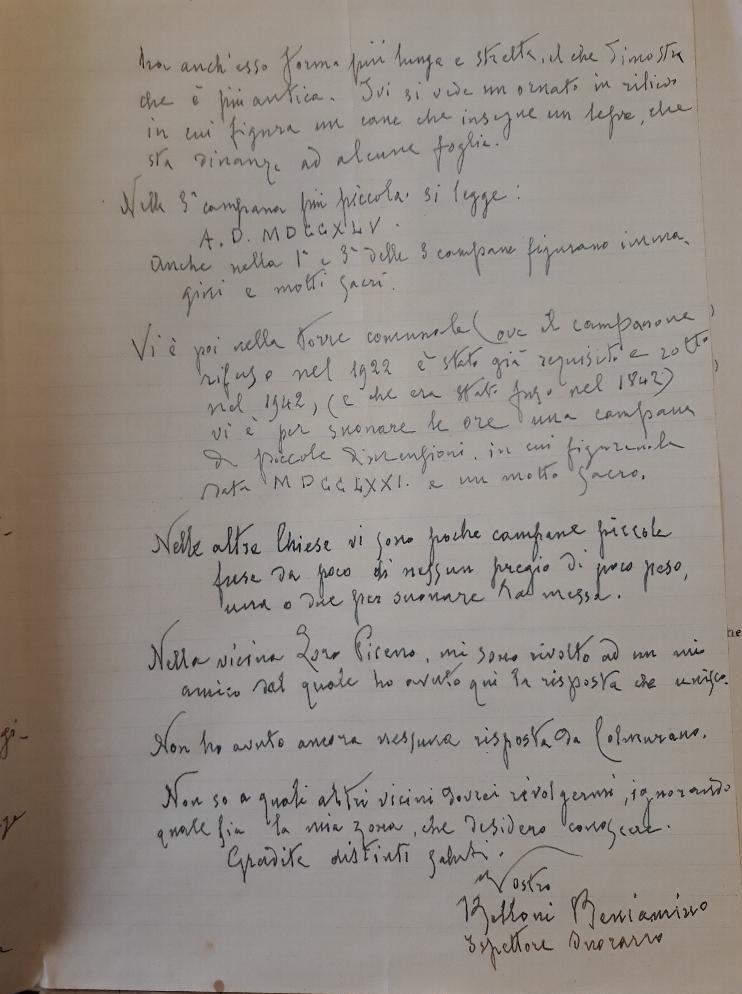 ha anch'esso forma più lunga e stretta, il che dimostra
che è più antica. Ivi si vede un ornato in rilievo
in cui figura un cane che insegue un lepre, che
sta dinanzi ad alcune foglie.
Nella 3ª campana più piccola si legge:
A. D. MDCCXLV.
Anche nella 1ª e 3ª delle 3 campane figurano imma-
gini e motti sacri.
Vi è poi nella Torre comunale (ove il campanone
rifuso nel 1922 è stato già requisito e rotto
nel 1942, (e che era stato fuso nel 1842)
vi è per suonare le ore una campana
di piccole dimensioni, in cui figura la
data MDCCLXXI. e un motto sacro.
Nelle altre Chiese vi sono poche campane piccole
fuse da poco di nessun pregio di poco peso,
una o due per suonare la messa.
Nella vicina Loro Piceno, mi sono rivolto ad un mio
amico dal quale ho avuto qui la risposta che unisco.
Non ho avuto ancora nessuna risposta da Colmurano.
Non so a quali altri vicini dovrei rivolgermi, ignorando
quale sia la mia zona, che desidero conoscere.
Gradite distinti saluti.
Vostro
Belloni Beniamino
Ispettore Onorario
gi-
ne